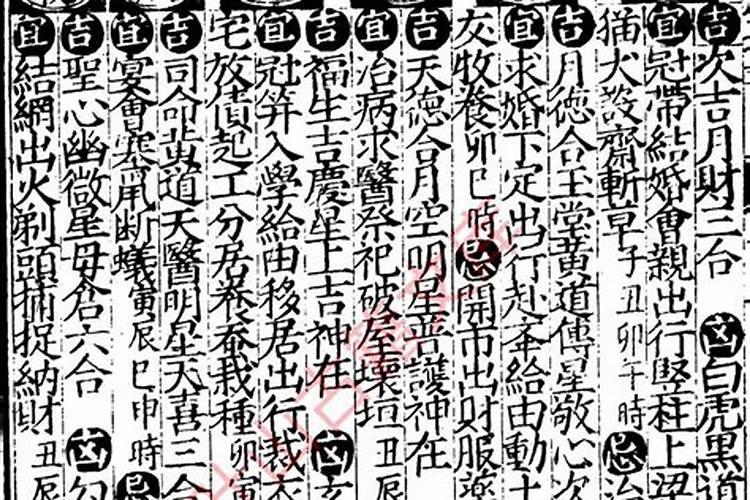 吉次吉月財三合 凶白虎黑道
宜冠帶結婚會親出行竪柱上梁
猫犬設齋斬草子丑卯午時忌治
吉月德合玉堂黃道傳星敬心次
宜求婚下定出行赴任給由動土
交牧養卯巳時忌開市出財服藥
吉天德合月空明星普護神在
宜治病求醫祭祀破屋壞垣丑辰
福生吉慶星上吉神在 凶玄
宜冠笄入學給由移居出行裁衣
宅放債起工分居養蚕栽種卯寅
吉司命黃道天醫明星天喜三合
宜宴會塞鼠断蟻寅辰巳申時忌
吉聖心幽微星母倉六合 凶勾
宜結網出火剃頭捕捉納財丑辰